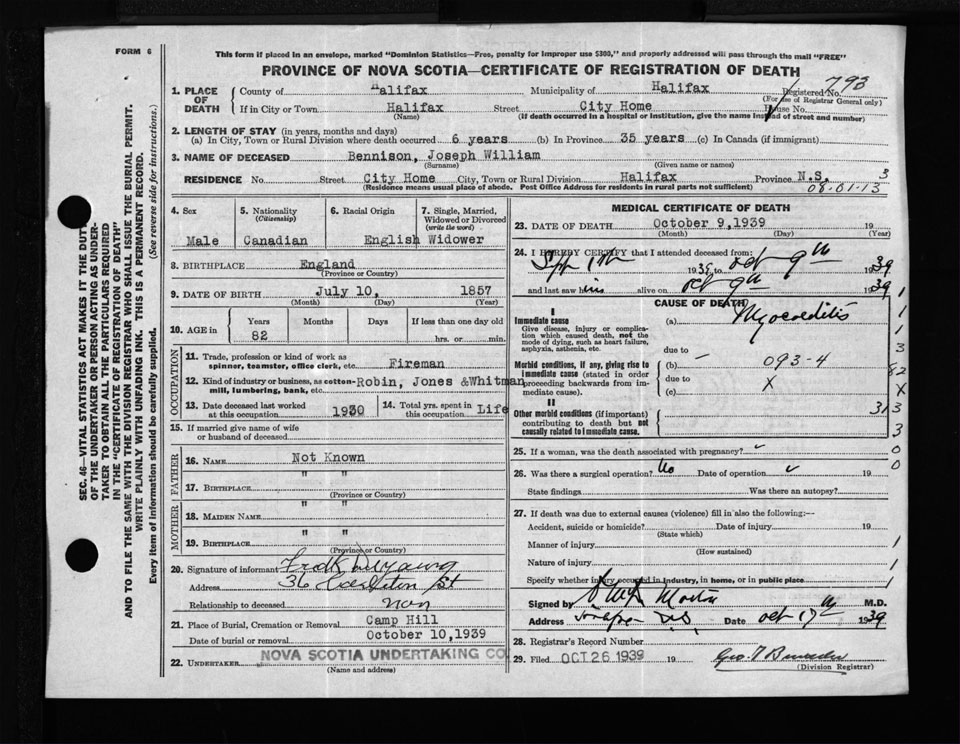 FORM 6
This form if placed in an envelope, marked "Dominion Statistics—Free, penalty for improper use $300," and properly addressed will pass through the mail "FREE"
PROVINCE OF NOVA SCOTIA—CERTIFICATE OF REGISTRATION OF DEATH
1. PLACE OF DEATH
County of Halifax Municipality of Halifax Registered No. 793
(For use of Registrar General only)
If in City or Town Halifax Street City Home House No.
(Name) (If death occurred in a hospital or institution, give the name instead of street and number)
2. LENGTH OF STAY (in years, months and days)
(a) In City, Town or Rural Division where death occurred 6 years (b) In Province 35 years (c) In Canada (if immigrant)
3. NAME OF DECEASED Bennison, Joseph William
(Surname) (Given name or names)
RESIDENCE No. Street City Home City, Town or Rural Division Halifax Province N.S. 3
(Residence means usual place of abode. Post Office Address for residents in rural parts not sufficient) 08-01-13
4. Sex Male
5. Nationality (Citizenship) Canadian
6. Racial Origin English
7. Single, Married, Widowed or Divorced (write the word) Widower
8. BIRTHPLACE England
(Province or Country)
9. DATE OF BIRTH July 10, 1857
(Month) (Day) (Year)
10. AGE in Years Months Days If less than one day old
82 hrs. or min.
OCCUPATION
11. Trade, profession or kind of work as spinner, teamster, office clerk, etc. Fireman
12. Kind of industry or business, as cotton-mill, lumbering, bank, etc. Robin, Jones &Whitman
13. Date deceased last worked at this occupation 1930
14. Total yrs. spent in this occupation Life
15. If married give name of wife or husband of deceased
FATHER
16. NAME Not Known
17. BIRTHPLACE " "
(Province or Country)
MOTHER
18. MAIDEN NAME " "
19. BIRTHPLACE " "
(Province or Country)
20. Signature of informant
Address 36 St
Relationship to deceased non
21. Place of Burial, Cremation or Removal Camp Hill
Date of burial or removal October 10,1939
22. UNDERTAKER NOVA SCOTIA UNDERTAKING CO
(Name and address)
MEDICAL CERTIFICATE OF DEATH
23. DATE OF DEATH October 9,1939 19
(Month) (Day) (Year)
24. I HEREBY CERTIFY that I attended deceased from:
1939 to Oct 9th 1939
and last saw him alive on Oct 9th 1939
CAUSE OF DEATH
I
Immediate cause
Give disease, injury or complication which caused death, not the mode of dying, such as heart failure, asphyxia, asthenia, etc.
(a) Myocarditis
due to
Morbid conditions, if any, giving rise to immediate cause (stated in order proceeding backwards from immediate cause).
(b) 093-4
due to X
(c)
II
Other morbid conditions (if important) contributing to death but not causally related to immediate cause.
313
25. If a woman, was the death associated with pregnancy?
26. Was there a surgical operation? No Date of operation 19
State findings Was there an autopsy?
27. If death was due to external causes (violence) fill in also the following:—
Accident, suicide or homicide? Date of injury 19
(State which)
Manner of injury
(How sustained)
Nature of injury
Specify whether injury occurred in industry, in home, or in public place
Signed by M.D.
Address Date Oct 17 1939
28. Registrar's Record Number
29. Filed OCT 26 1939 19
(Division Registrar)
SEC. 46—VITAL STATISTICS ACT MAKES IT THE DUTY
OF THE UNDERTAKER OR PERSON ACTING AS UNDER-
TAKER TO OBTAIN ALL THE PARTICULARS REQUIRED
IN THE "CERTIFICATE OF REGISTRATION OF DEATH"
AND TO FILE THE SAME WITH THE DIVISION REGISTRAR WHO SHALL ISSUE THE BURIAL PERMIT.
WRITE PLAINLY WITH UNFADING INK. THIS IS A PERMANENT RECORD.
Every item of information should be carefully supplied. (See reverse side for instructions.)